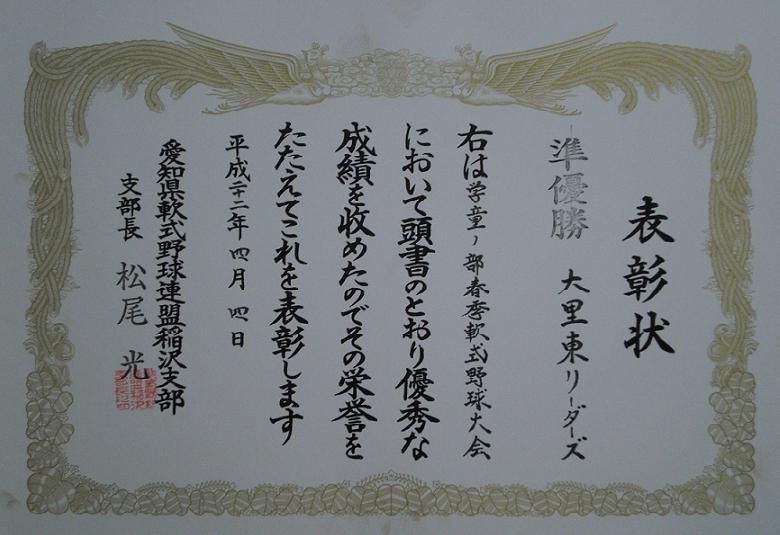 表彰状
準優勝 大里東リーダーズ
右は学童ノ部春季軟式野球大会
において頭書のとおり優秀な
成績を収めたのでその栄誉を
たたえてこれを表彰します
平成二十二年四月四日
愛知県軟式野球連盟稲沢支部
支部長 松尾光